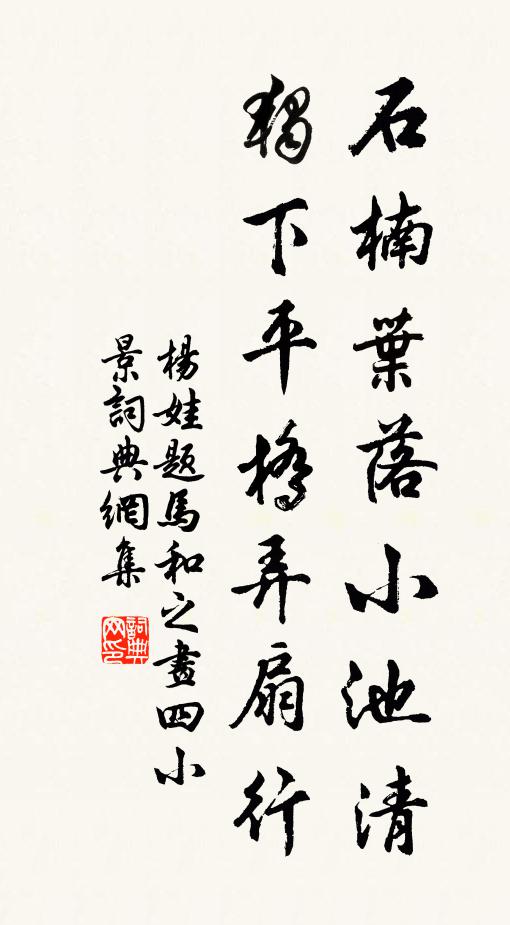 石楠葉落小池清
獨下平橋弄扇行
楊娃題馬和之畫四小
景詞典網集
詞典网印